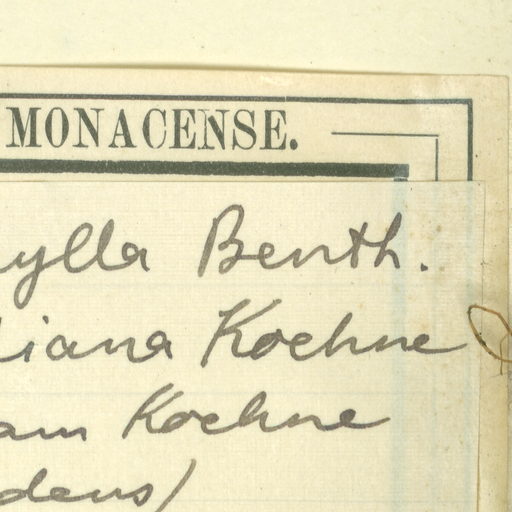 MONACENSE.
ylla Benth.
liana Koehne
am Koehne
dens)